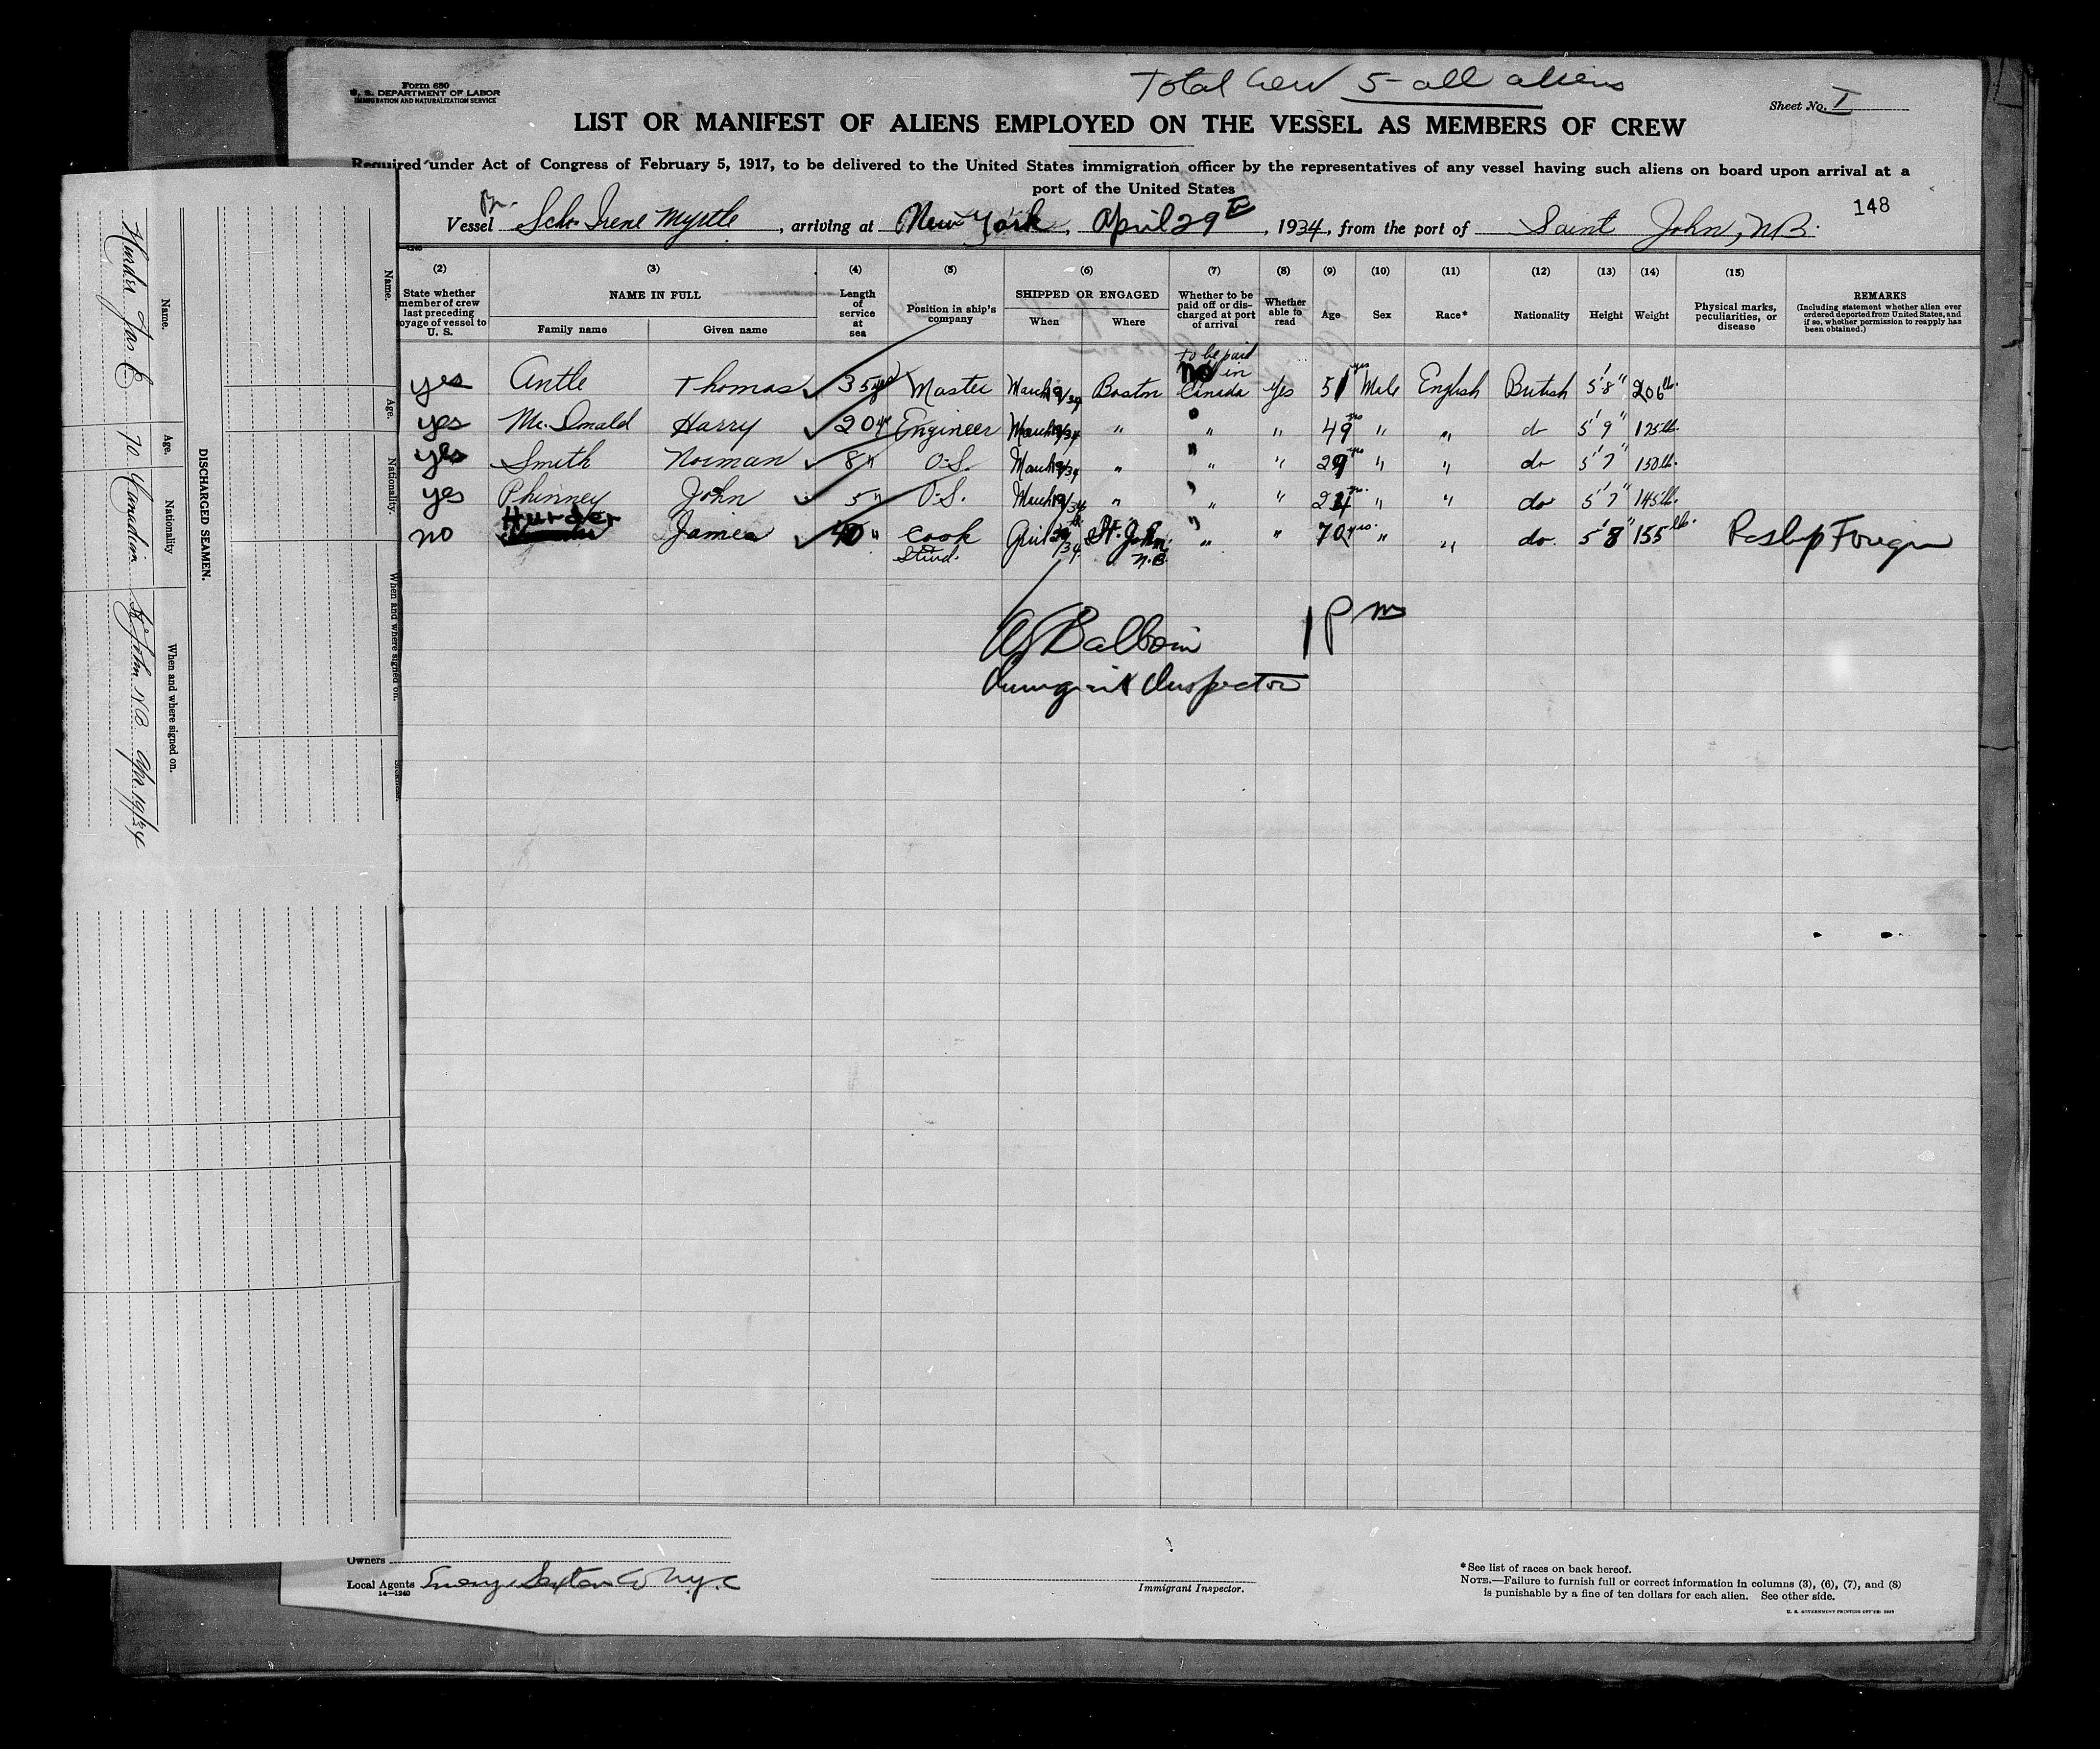 Total Crew 5 - all aliens
Form 680
U. S. DEPARTMENT OF LABOR
IMMIGRATION AND NATURALIZATION SERVICE
Sheet No. 1
LIST OR MANIFEST OF ALIENS EMPLOYED ON THE VESSEL AS MEMBERS OF CREW
Required under Act of Congress of February 5, 1917, to be delivered to the United States immigration officer by the representatives of any vessel having such aliens on board upon arrival at a
port of the United States
148
Vessel Br. Sch. Irene Myrtle, arriving at New York, April 29th, 1934, from the port of Saint John, N.B.
(2) (3) (4) (5) (6) (7) (8) (9) (10) (11) (12) (13) (14) (15)
State whether member of crew last preceding voyage of vessel to U. S. NAME IN FULL Family name Given name Length of service at sea Position in ship's company SHIPPED OR ENGAGED When Where Whether to be paid off or discharged at port of arrival Whether able to read Age Sex Race* Nationality Height Weight Physical marks, peculiarities, or disease REMARKS (Including statement whether alien ever ordered deported from United States, and if so, whether permission to reapply has been obtained.)
to be paid
yes Antle Thomas 35 yrs Master March 19/34 Boston no in Canada Yes 51 yrs Male English British 5'8" 206 lb.
yes Mc.Donald Harry 20 yr Engineer March 19/34 " " " 49 yrs " " do 5'9" 175 lb.
yes Smith Norman 8 " O.S. March 19/34 " " " 29 yrs " " do 5'7" 150 lb.
yes Phinney John 5 " O.S. March 19/34 " " " 24 yrs. " " do 5'7" 145 lb.
no Hurder James 40 " Cook Stwd. April 19/34 St. John, N.B. " " 70 yrs. " " do. 5'8" 155 lb. Reship Foreign
1 Pm
Immigrant Inspector
Name. Age. Nationality. When and where signed on.
DISCHARGED SEAMEN.
Name. Age. Nationality When and where signed on.
Hurder Jas E 70 Canadian St. John N.B. Apr. 19/34
Owners
Local Agents
14—1240
Immigrant Inspector.
*See list of races on back hereof.
NOTE.—Failure to furnish full or correct information in columns (3), (6), (7), and (8)
is punishable by a fine of ten dollars for each alien. See other side.